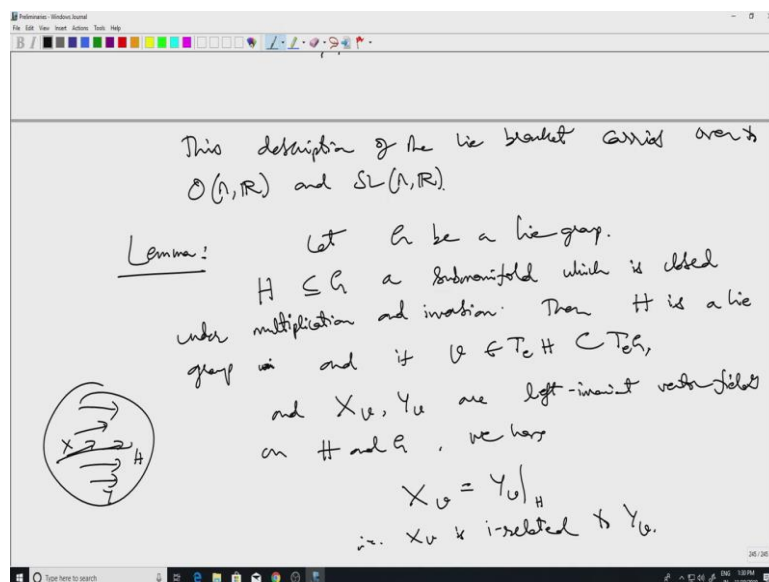 Preliminaries - Windows Journal
File Edit View Insert Actions Tools Help
This description of the Lie bracket carries over to
O(n, ℝ) and SL(n, ℝ).
Lemma: Let G be a Lie group.
H ⊆ G a submanifold which is closed
under multiplication and inversion. Then H is a Lie
group and if v ∈ TₑH ⊂ TₑG,
and Xᵥ, Yᵥ are left-invariant vector-fields
on H and G, we have
Xᵥ = Yᵥ|_H
i.e. Xᵥ is i-related to Yᵥ.
X H
Y
245 / 245
Type here to search
ENG 1:30 PM